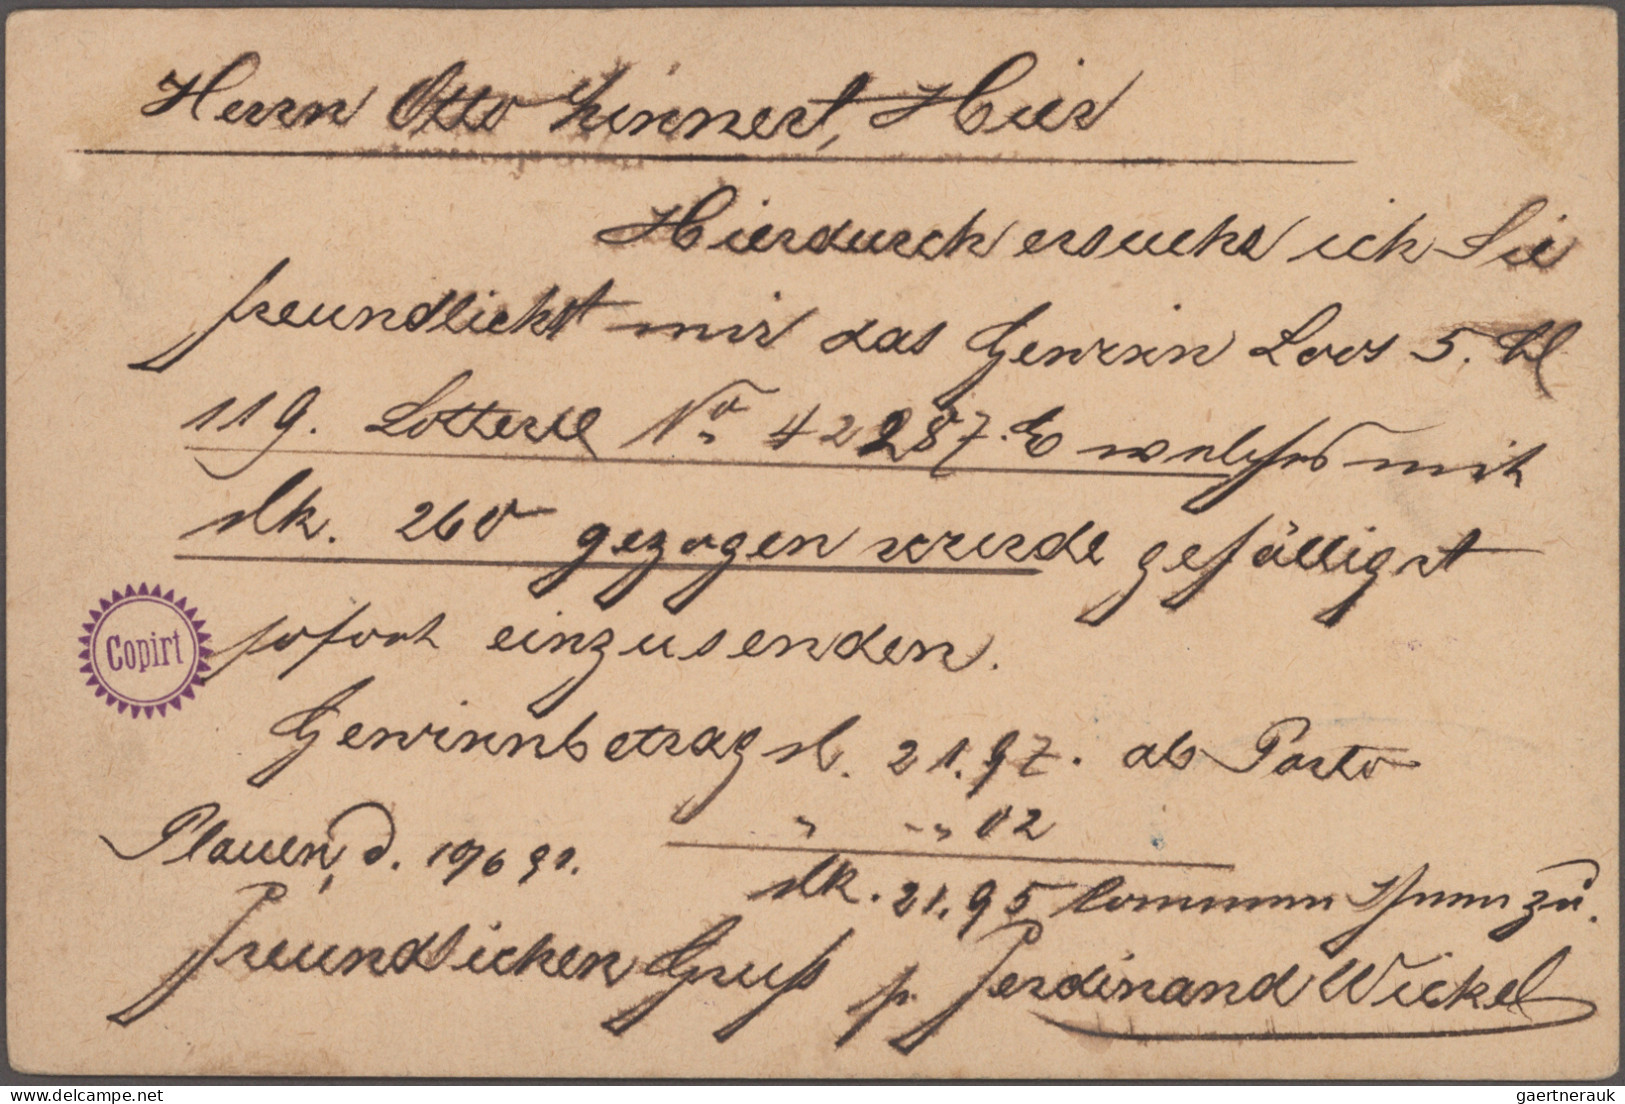 Herrn Otto Zinnert, Hier
Hierdurch ersuche ich Sie
freundlichst mir das Gewinn Loos 5. Kl
119. Lotterie No 42287. E welches mit
Mk. 260 gezogen wurde gefälligst
sofort einzusenden.
Copirt
Gewinnbetrag M. 21.97. ab Porto
" " 02
Plauen, d. 10/6 91.
Mk. 21.95 kommen Ihnen zu.
Freundlichen Gruß p. Ferdinand Wickel
gaertnerauk